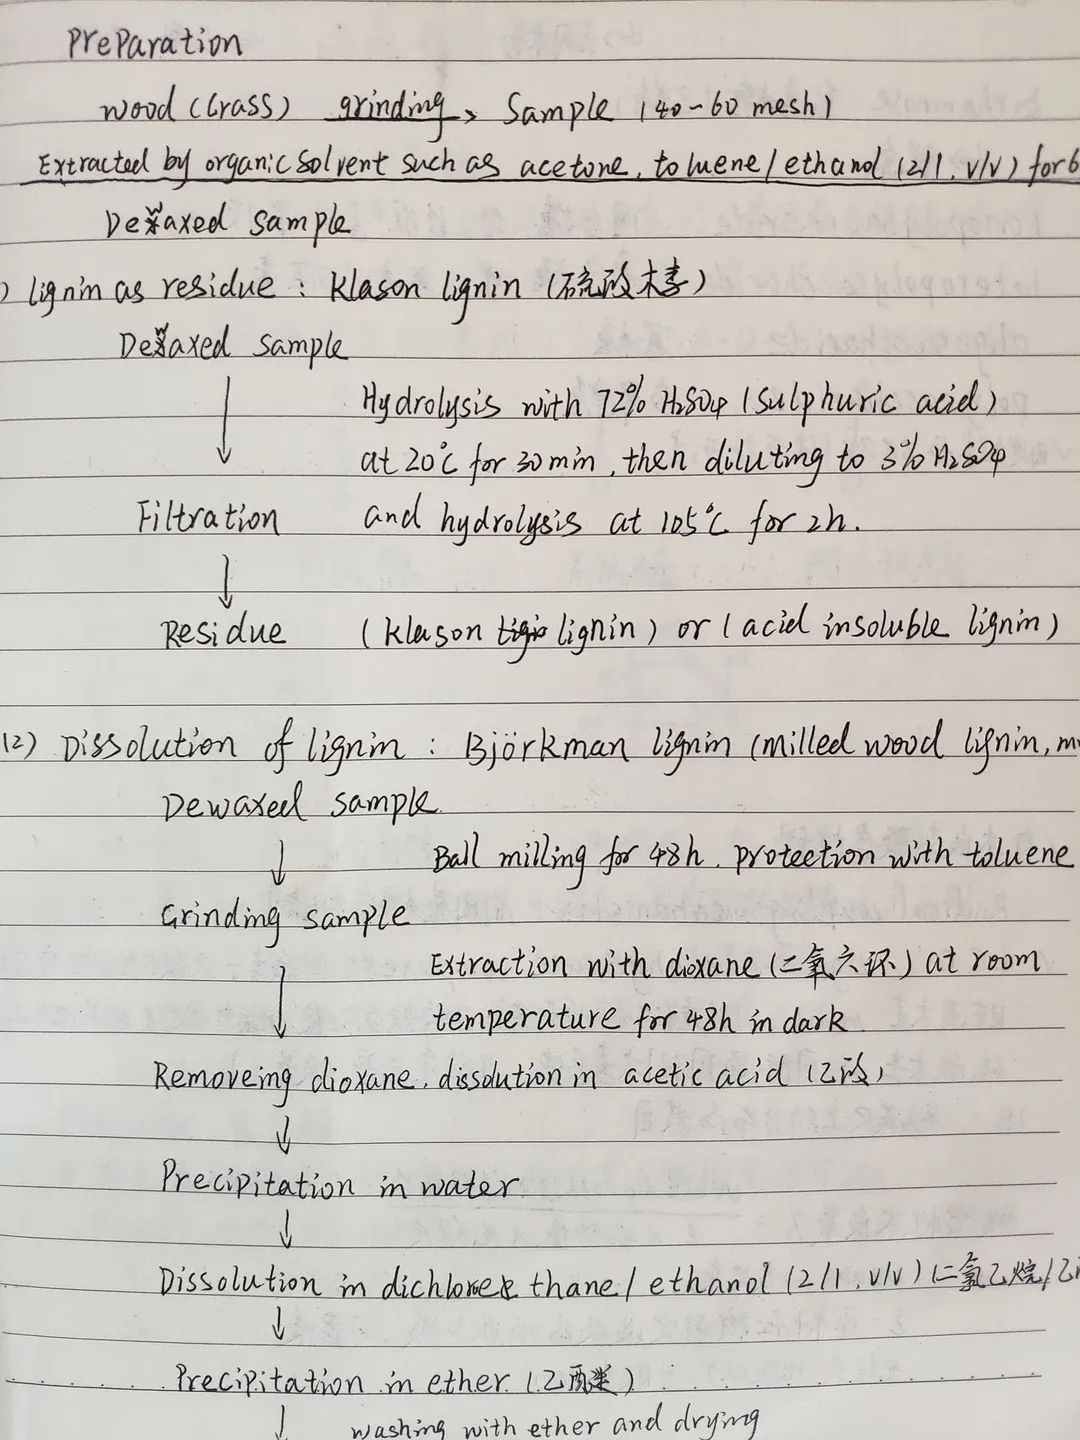 Preparation
wood (Grass) grinding Sample (40~60 mesh)
Extracted by organic solvent such as acetone, toluene/ethanol (2/1, v/v) for 6
Dewaxed sample
) lignin as residue : Klason lignin (硫酸木素)
Dewaxed sample
Hydrolysis with 72% H2SO4 (Sulphuric acid)
↓ at 20℃ for 30min, then diluting to 3% H2SO4
Filtration and hydrolysis at 105℃ for 2h.
↓
Residue (Klason lignin) or (acid insoluble lignin)
(2) Dissolution of lignin : Björkman lignin (milled wood lignin, m
Dewaxed sample
↓ Ball milling for 48h, protection with toluene
Grinding sample
Extraction with dioxane (二氧六环) at room
↓ temperature for 48h in dark
Removeing dioxane, dissolution in acetic acid (乙酸)
↓
Precipitation in water
↓
Dissolution in dichloroethane/ethanol (2/1, v/v) (二氯乙烷/乙
↓
Precipitation in ether (乙醚)
↓ washing with ether and drying